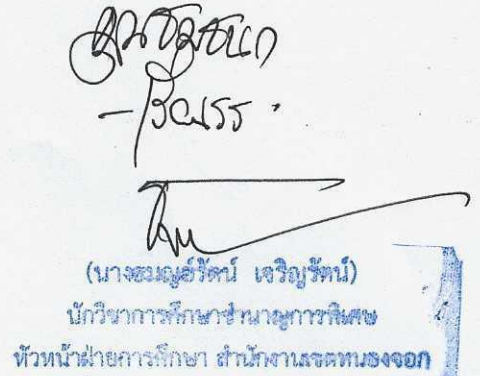 คุณชมชนก
(นางธมญอ์รัตน์ เจริญรัตน์)
นักวิชาการศึกษาชำนาญการพิเศษ
หัวหน้าฝ่ายการศึกษา สำนักงานเขตหนองจอก